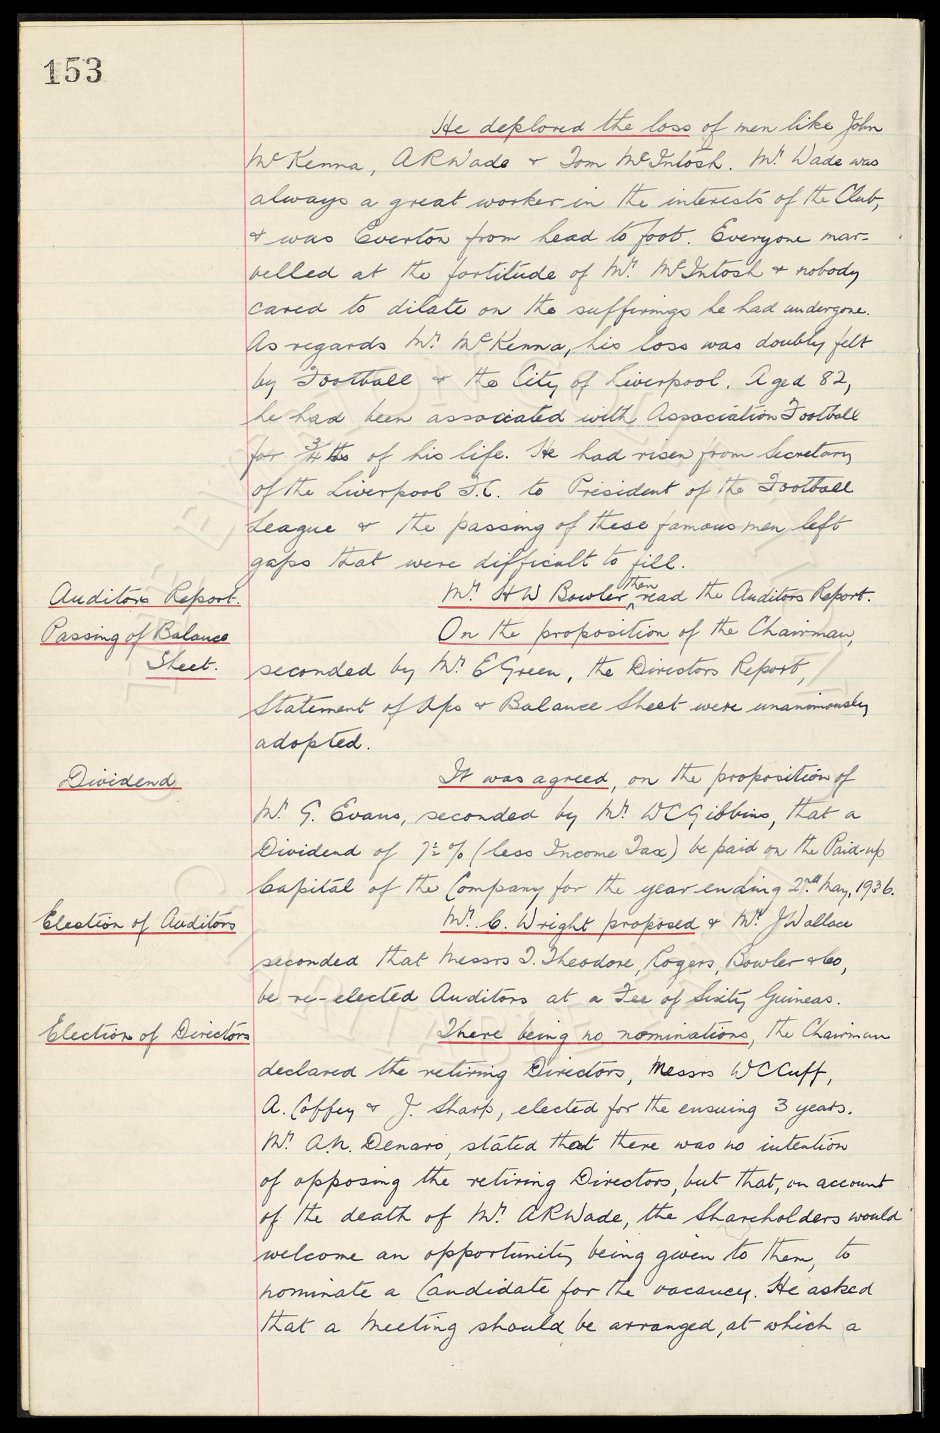 153
He deplored the loss of men like John
McKenna, A R Wade & Tom McIntosh. Mr. Wade was
always a great worker in the interests of the Club,
& was Everton from head to foot. Everyone mar-
velled at the fortitude of Mr. McIntosh & nobody
cared to dilate on the sufferings he had undergone.
As regards Mr. McKenna, his loss was doubly felt
by Football & the City of Liverpool. Aged 82,
he had been associated with Association Football
for 3/4 ths of his life. He had risen from Secretary
of the Liverpool F.C. to President of the Football
League & the passing of these famous men left
gaps that were difficult to fill.
Auditors Report. Mr. H W Bowler, then read the Auditors Report.
Passing of Balance On the proposition of the Chairman,
Sheet. seconded by Mr. E Green, the Directors Report,
Statement of A/cs & Balance Sheet were unanimously
adopted.
Dividend It was agreed, on the proposition of
Mr. G. Evans, seconded by Mr. W C Gibbins, that a
Dividend of 7½% (less Income Tax) be paid on the Paid-up
Capital of the Company for the year ending 2nd. May, 1936.
Election of Auditors Mr. C. Wright proposed & Mr. J Wallace
seconded that Messrs T. Theodore, Rogers, Bowler & Co,
be re-elected Auditors at a Fee of Sixty Guineas.
Election of Directors There being no nominations, the Chairman
declared the retiring Directors, Messrs W C Cuff,
A. Coffey & J. Sharp, elected for the ensuing 3 years.
Mr. A.N. Denaro, stated that there was no intention
of opposing the retiring Directors, but that, on account
of the death of Mr. A R Wade, the Shareholders would
welcome an opportunity being given to them, to
nominate a Candidate for the vacancy. He asked
that a Meeting should be arranged, at which a